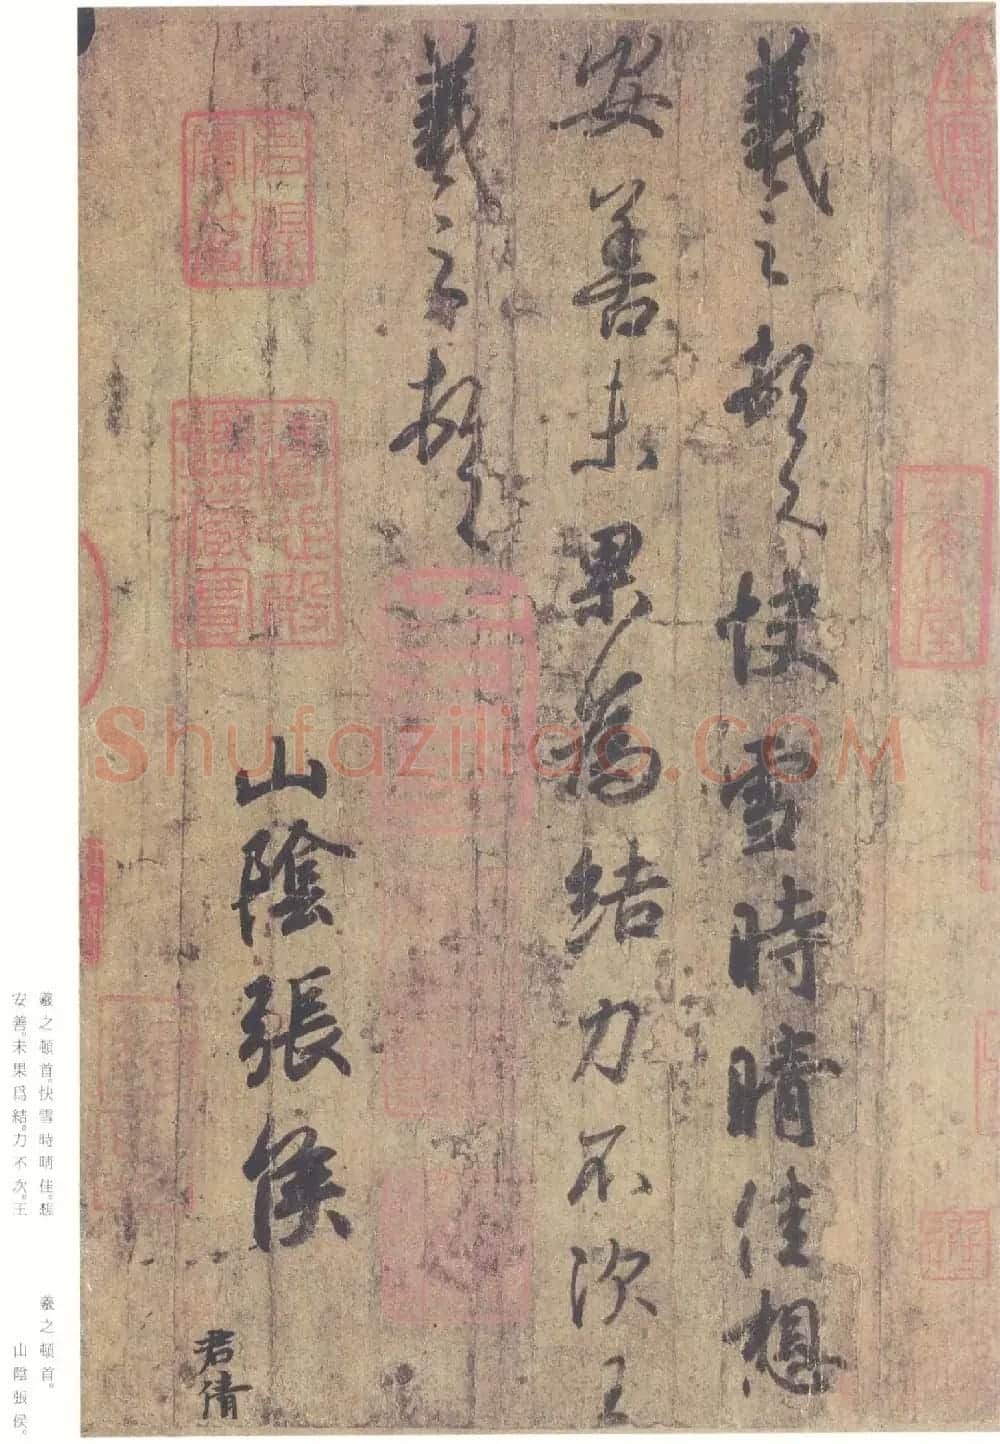 羲之頓首快雪時晴佳想
安善未果為結力不次王
羲之頓首
山陰張侯
君倩
Shufaziliao.COM
羲之頓首。快雪時晴佳。想
安善。未果爲結。力不次。王
羲之頓首。
山陰張侯。